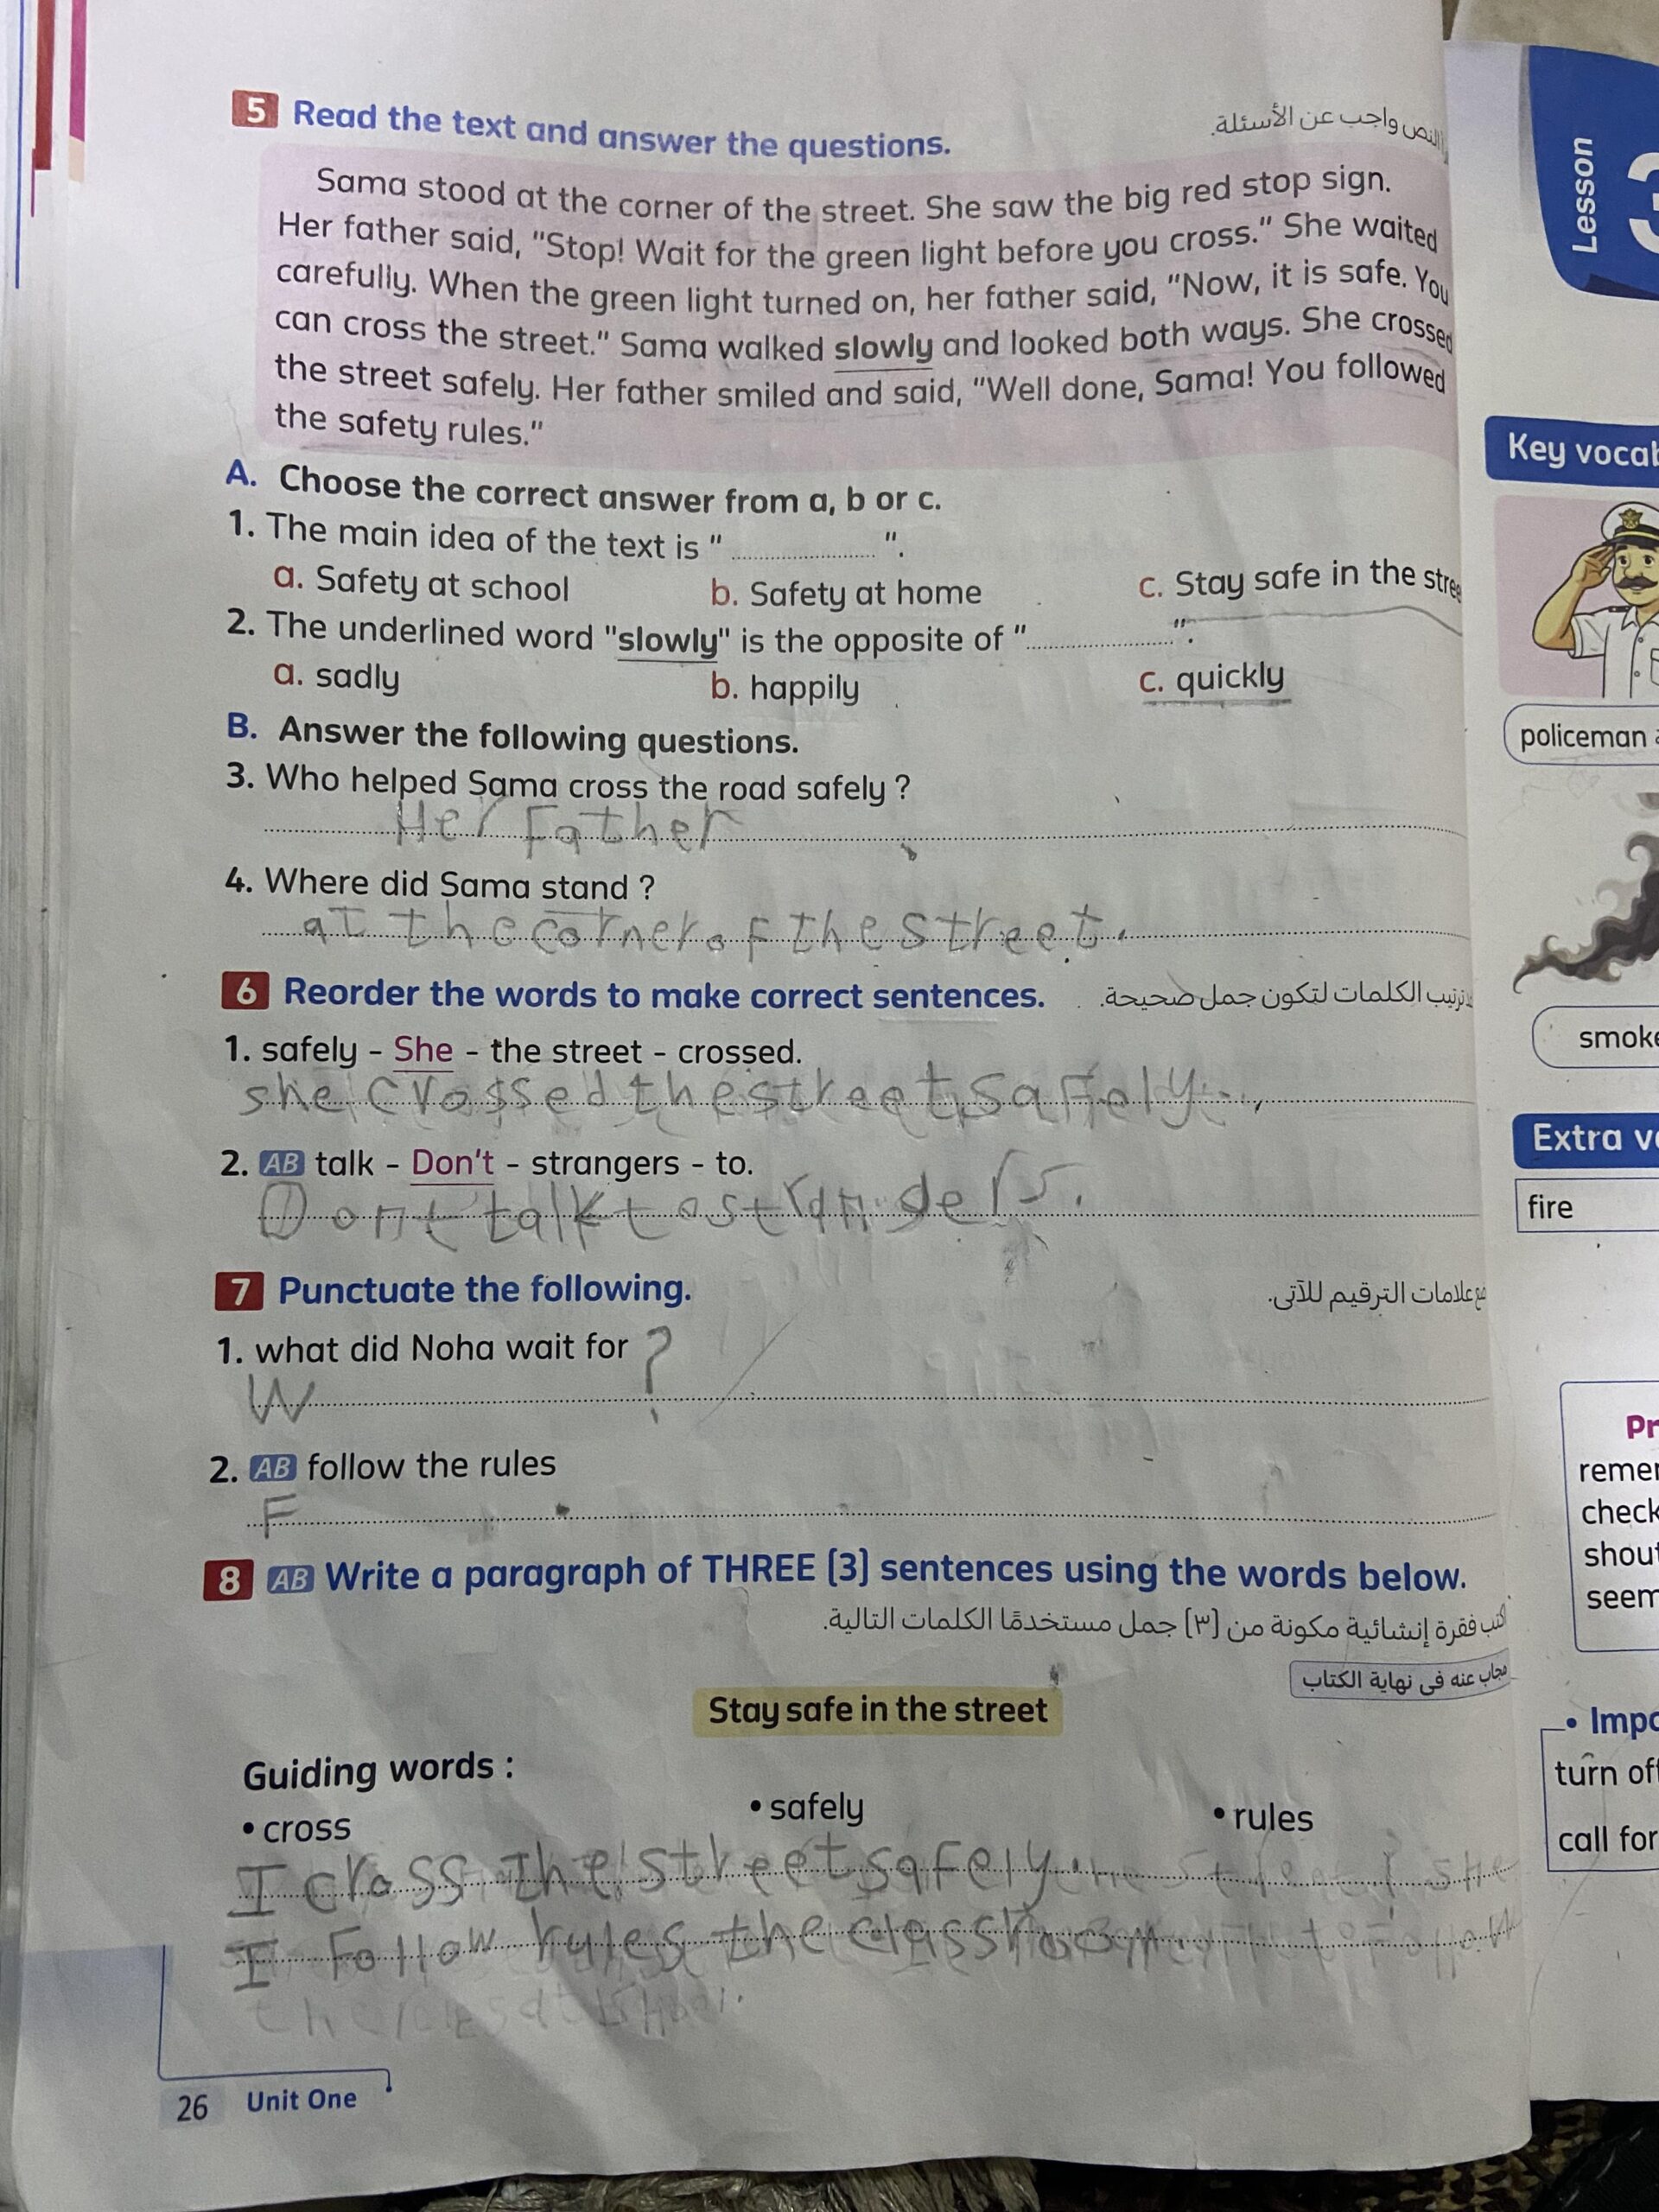 5 Read the text and answer the questions.
النص واجب عن الأسئلة.
Sama stood at the corner of the street. She saw the big red stop sign.
Her father said, "Stop! Wait for the green light before you cross." She waited
carefully. When the green light turned on, her father said, "Now, it is safe. You
can cross the street." Sama walked slowly and looked both ways. She crossed
the street safely. Her father smiled and said, "Well done, Sama! You followed
the safety rules."
A. Choose the correct answer from a, b or c.
1. The main idea of the text is "..................".
a. Safety at school b. Safety at home c. Stay safe in the stree
2. The underlined word "slowly" is the opposite of "..................".
a. sadly b. happily c. quickly
B. Answer the following questions.
3. Who helped Sama cross the road safely ?
Her Father
4. Where did Sama stand ?
at the corner of the street.
6 Reorder the words to make correct sentences.
ترتيب الكلمات لتكون جمل صحيحة.
1. safely - She - the street - crossed.
she crossed the street safely.
2. AB talk - Don't - strangers - to.
Dont talk to strangers.
7 Punctuate the following.
علامات الترقيم للآتى.
1. what did Noha wait for ?
W
2. AB follow the rules
F .
8 AB Write a paragraph of THREE (3) sentences using the words below.
فقرة إنشائية مكونة من (٣) جمل مستخدمًا الكلمات التالية.
مجاب عنه فى نهاية الكتاب
Stay safe in the street
Guiding words :
• cross • safely • rules
I cross the street safely.
I Follow rules the classroom.
26 Unit One
Lesson 3
Key vocab
policeman
smoke
Extra v
fire
Pr
remer
check
shout
seem
• Impo
turn off
call for